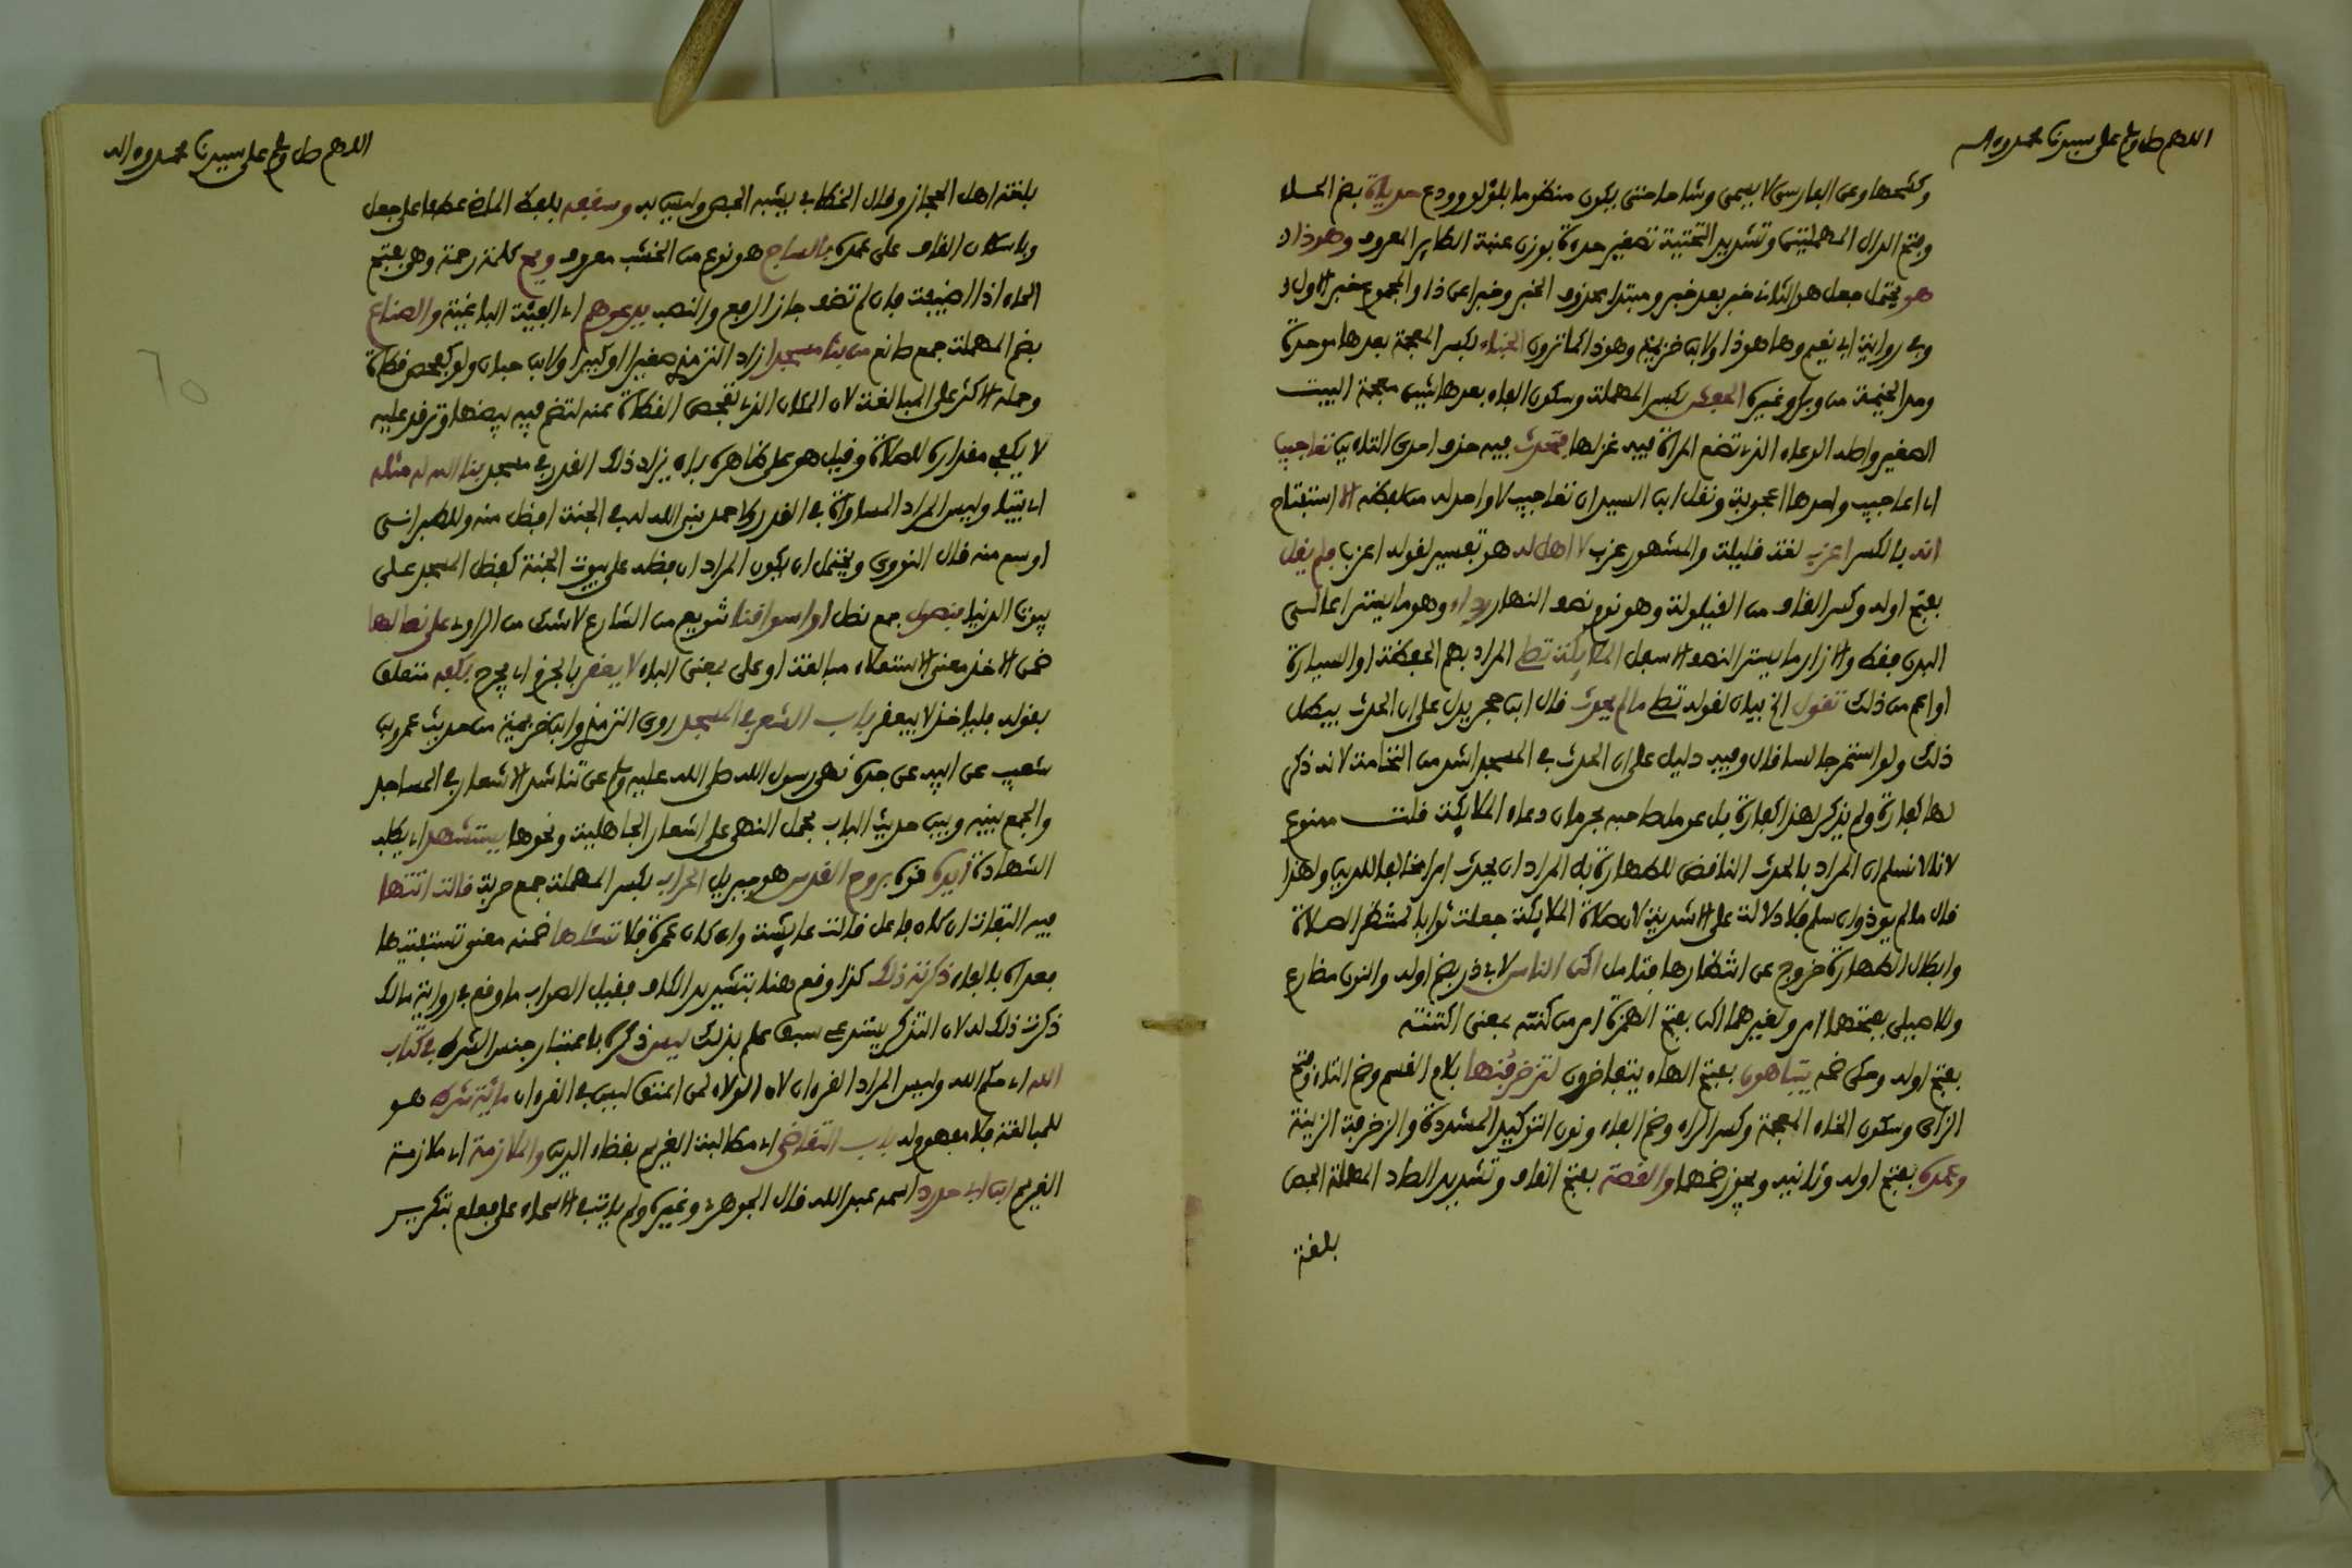 اللهم صل وسلم على سيدنا محمد وءاله
وكشحها وعن الفارسي لا يسمى وشاحا حتى يكون منظوما بلؤلؤ وودع حدياة بضم الحاء
وفتح الدال المهملتين وتشديد التحتية تصغير حدءة بوزن عنبة الطاير المعروف وهو ذا
هو يحتمل جعل هو الثاني خبر بعد خبر ومبتدا محذوف الخبر وخبرا عن ذا والمجموع خبر الاول
وفي رواية ابي نعيم وها هو ذا ولابن خزيمة وهو ذا كما ترون الخباء بكسر المعجمة بعدها موحدة
ومد الخيمة من وبر وغيره الحفش بكسر المهملة وسكون الفاء بعدها شين معجمة البيت
الصغير واصله الوعاء الذي تضع المراة فيه غزلها فتحدث فيه حذف احدى التاءين تعاجيب
اي اعاجيب واحدها اعجوبة ونقل ابن السيد ان تعاجيب لا واحد له من لفظه الا استفتاح
انه بالكسر اعزب لغة قليلة والمشهور عزب لا اهل له هو تفسير لقوله اعزب فلم يقل
بفتح اوله وكسر القاف من القيلولة وهو نوم نصف النهار رداء وهو ما يستر اعالي
البدن فقط والازار ما يستر النصف الاسفل الملايكة تصلي المراد بهم الحفظة او السيارة
او اعم من ذلك تقول الخ بيان لقوله تصلي ما لم يحدث قال ابن حجر يدل على ان الحدث يبطل
ذلك ولو استمر جالسا قال وفيه دليل على ان الحدث في المسجد اشد من النخامة لانه ذكر
لها كفارة ولم يذكر لهذا كفارة بل عومل صاحبه بحرمان دعاء الملايكة قلت ممنوع
لانا لا نسلم ان المراد بالحدث الناقض للطهارة بل المراد ان يحدث امرا مخالفا للدين ولهذا
قال ما لم يوذ وان سلم فلا دلالة على الاشدية لان صلاة الملايكة جعلت ثوابا لمنتظر الصلاة
وابطال الطهارة خروج عن انتظارها فتامل اكن الناس لابي ذر بضم اوله والنون مضارع
وللاصيلي بفتحهما امر ولغيرهما اكن بفتح الهمزة امر من كننته بمعنى اكننته
بفتح اوله وحكى ضمه يتباهون بفتح الهاء يتفاخرون لتزخرفنها بلام القسم وضم التاء وفتح
الزاي وسكون الخاء المعجمة وكسر الراء وضم الفاء ونون التوكيد المشددة والزخرفة الزينة
وعمده بفتح اوله وثانيه ويجوز ضمهما والقصة بفتح القاف وتشديد الصاد المهملة الجص
بلغة
اللهم صل وسلم على سيدنا محمد وءاله
بلغة اهل الحجاز وقال الخطابي يشبه الجص وليس به وسقفه بلفظ الماضي عطفا على جعل
وباسكان القاف على عمده بالساج هو نوع من الخشب معروف ويح كلمة رحمة وهي بفتح
الحاء اذا اضيفت فان لم تضف جاز الرفع والنصب يدعوهم اي الفئة الباغية والصناع
بضم المهملة جمع صانع من بنا مسجدا زاد الترمذي صغيرا او كبيرا ولابن حبان ولو كمفحص قطاة
وحمله الاكثر على المبالغة لان المكان الذي تفحص القطاة عنه لتضع فيه بيضها وترقد عليه
لا يكفي مقداره للصلاة وقيل هو على ظاهره بان يزاد ذلك القدر في مسجد بنا الله له مثله
اي بيتا وليس المراد المساواة في القدر ولاحمد بنى الله له في الجنة افضل منه وللطبراني
اوسع منه قال النووي ويحتمل ان يكون المراد ان فضله على بيوت الجنة كفضل المسجد على
بيوت الدنيا بنصول جمع نصل او اسواقنا تنويع من الشارع لا شك من الراوي على نصالها
ضمن الاخذ معنى الاستعلاء مبالغة او على بمعنى الباء لا يعقر بالجزم اي يجرح بكفه متعلق
بقوله فليأخذ لا بيعقر باب الشعر في المسجد روى الترمذي وابن خزيمة من حديث عمرو بن
شعيب عن ابيه عن جده نهى رسول الله صلى الله عليه وسلم عن تناشد الاشعار في المساجد
والجمع بينه وبين حديث الباب بحمل النهي على اشعار الجاهلية ونحوها يستشهد اي يطلب
الشهادة ايده قوه بروح القدس هو جبريل الحراب بكسر المهملة جمع حربة قالت اتتها
فيه التفات ان كان فاعل قالت عايشة وان كان عمرة فلا تسئلها ضمنه معنى تستفتيها
فعداه بالفاء ذكرته ذلك كذا وقع هنا بتشديد الكاف فقيل الصواب ما وقع في رواية مالك
ذكرت ذلك له لان التذكر يستدعي سبق علم بذلك ليس ذكره باعتبار جنس الشرط في كتاب
الله اي حكم الله وليس المراد القرءان لان الولاء لمن اعتق ليس في القرءان ماية شرط هو
للمبالغة فلا مفهوم له باب التقاضي اي مطالبة الغريم بقضاء الدين والملازمة اي ملازمة
الغريم ابن ابي حدرد اسمه عبد الله قال الجوهري وغيره ولم يات في الاسماء على فعلع بتكرير